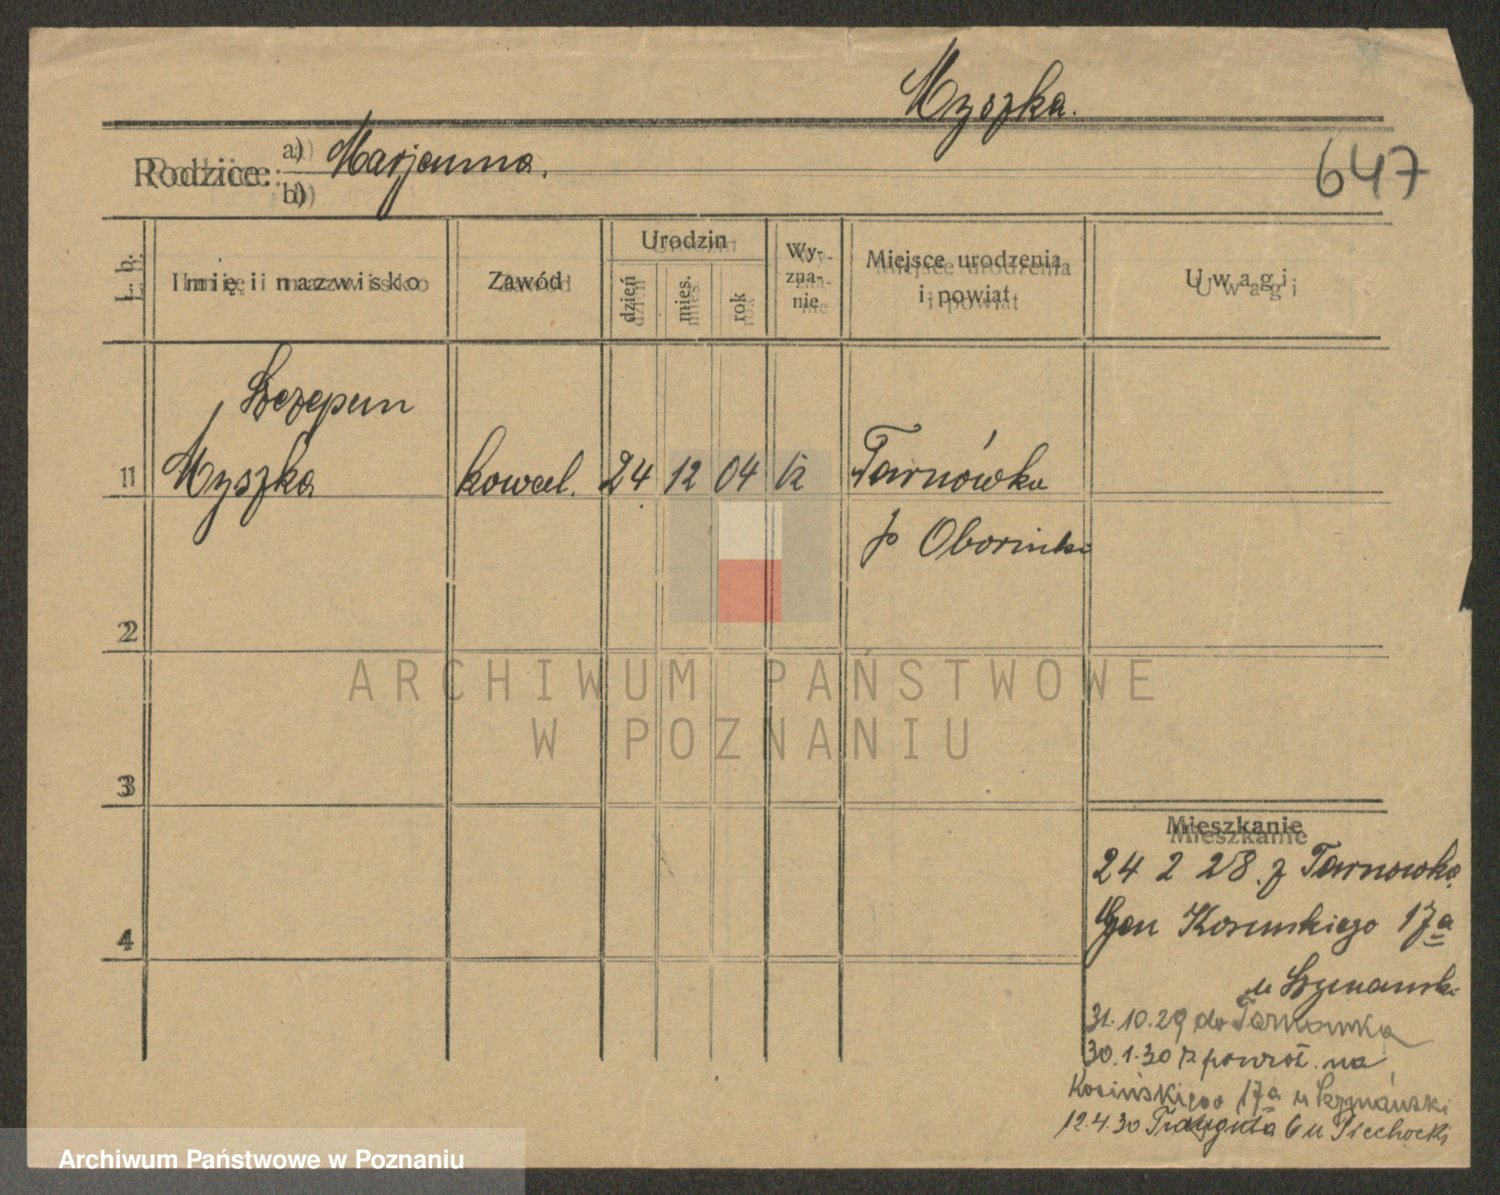 Myszka.
647
Rodzice: a) Marjanna.
b)
L. b. Imię i nazwisko Zawód Urodzin dzień mies. rok Wyznanie Miejsce urodzenia i powiat Uwagi
Szczepan
1 Myszka kowal. 24 12 04 Tarnówka
p Oborniki
2
3
4
Mieszkanie
24 2 28. z Tarnowka
Gen Kosinskiego 17a
u Szymanski
31.10.29 do Tarnowka
30.1.30 z powrot. na
Kosińskiego 17a u Szymański
12.4.30 Trauguta 6 u Piechocki
ARCHIWUM PAŃSTWOWE
W POZNANIU
Archiwum Państwowe w Poznaniu